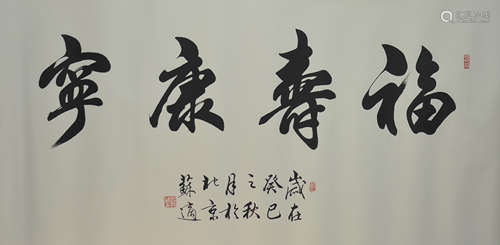 福壽康寧
歲在
癸巳
之秋
月於
北京
蘇適